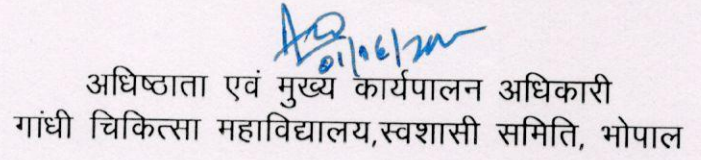 अधिष्ठाता एवं मुख्य कार्यपालन अधिकारी
गांधी चिकित्सा महाविद्यालय,स्वशासी समिति, भोपाल